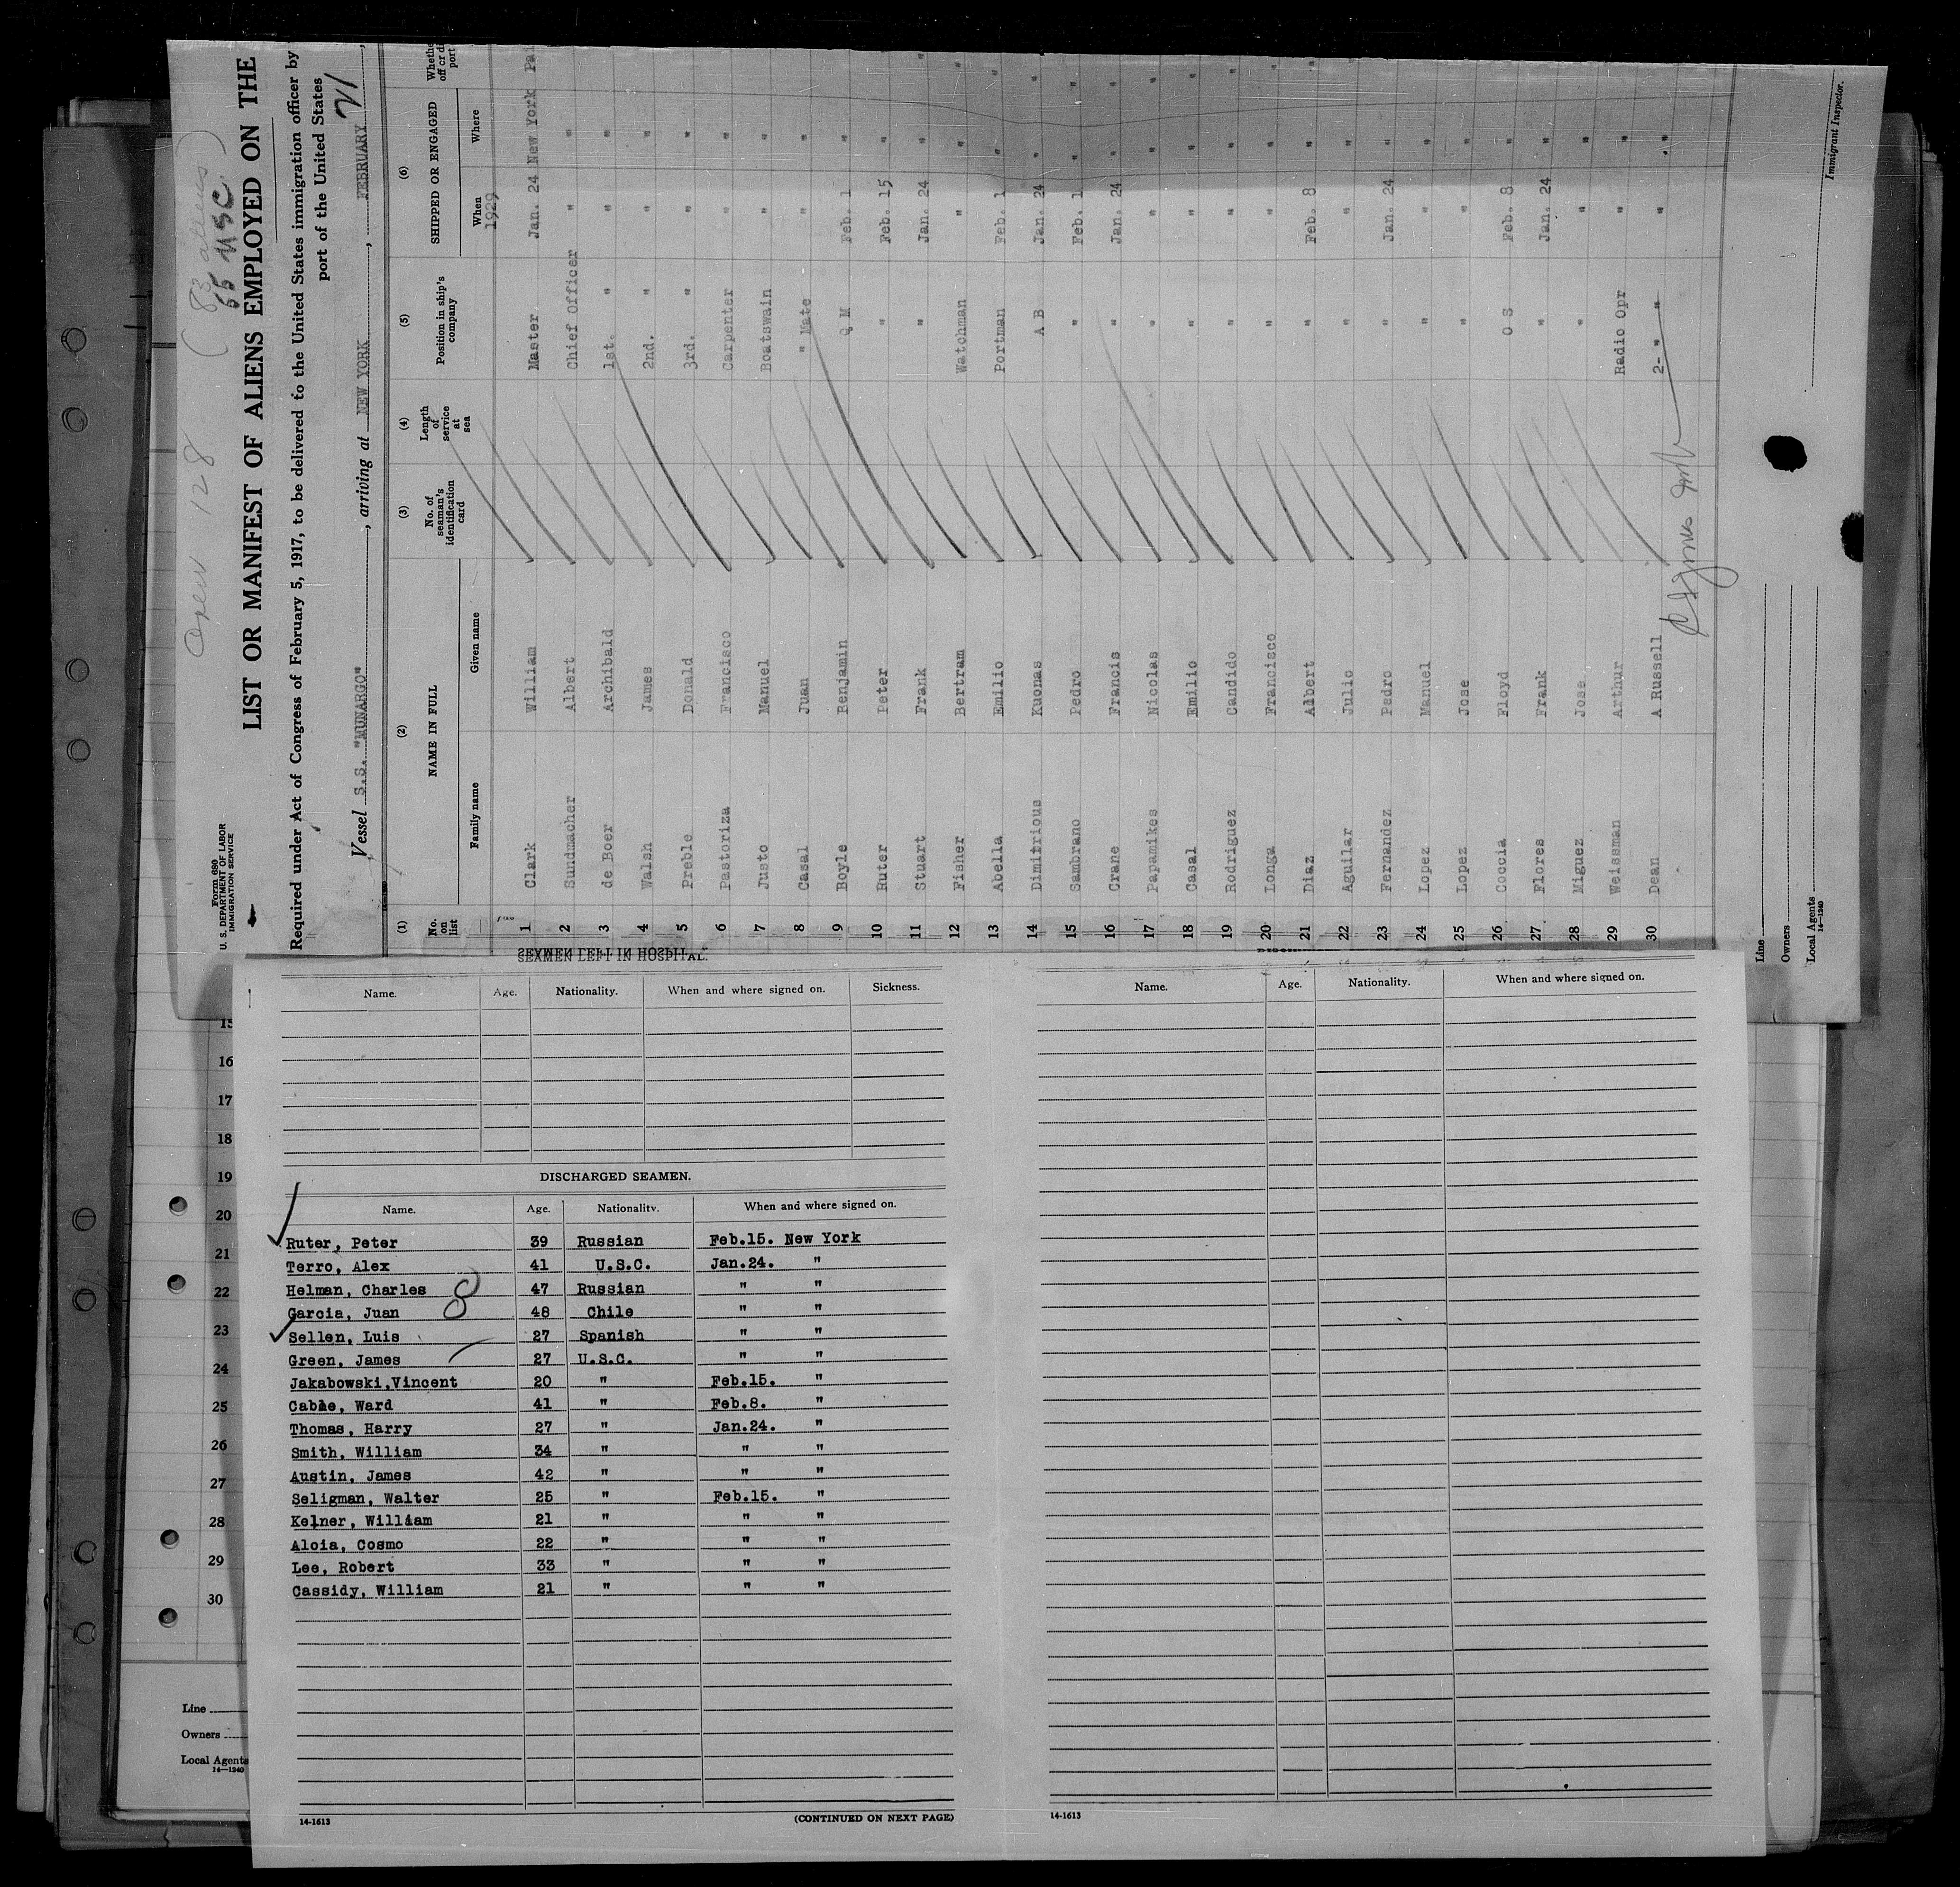 Crew 128 ( 83 aliens )
55 USC
Form 680
U. S. DEPARTMENT OF LABOR
IMMIGRATION SERVICE
LIST OR MANIFEST OF ALIENS EMPLOYED ON THE
Required under Act of Congress of February 5, 1917, to be delivered to the United States immigration officer by
port of the United States
Vessel S.S. "MUNARGO", arriving at NEW YORK, FEBRUARY 21,
(1) (2) (3) (4) (5) (6)
No. on list NAME IN FULL No. of seaman's identification card Length of service at sea Position in ship's company SHIPPED OR ENGAGED
Family name Given name When Where
1929
1 Clark William Master Jan. 24 New York
2 Sundmacher Albert Chief Officer " "
3 de Boer Archibald 1st. " " "
4 Walsh James 2nd. " " "
5 Preble Donald 3rd. " " "
6 Pastoriza Francisco Carpenter " "
7 Justo Manuel Boatswain " "
8 Casal Juan " Mate " "
9 Boyle Benjamin Q M Feb. 1 "
10 Ruter Peter " Feb. 15 "
11 Stuart Frank " Jan. 24 "
12 Fisher Bertram Watchman " "
13 Abella Emilio Portman Feb. 1 "
14 Dimitrious Kuonas A B Jan. 24 "
15 Sambrano Pedro " Feb. 1 "
16 Crane Francis " Jan. 24 "
17 Papamikes Nicolas " " "
18 Casal Emilio " " "
19 Rodriguez Candido " " "
20 Longa Francisco " " "
21 Diaz Albert " Feb. 8 "
22 Aguilar Julio " " "
23 Fernandez Pedro " Jan. 24 "
24 Lopez Manuel " " "
25 Lopez Jose " " "
26 Coccia Floyd O S Feb. 8 "
27 Flores Frank " Jan. 24 "
28 Miguez Jose " " "
29 Weissman Arthur Radio Opr " "
30 Dean A Russell 2- " " " "
Immigrant Inspector.
Line
Owners
Local Agents
14—1240
SEAMEN LEFT IN HOSPITAL.
Name. Age. Nationality. When and where signed on. Sickness.
DISCHARGED SEAMEN.
Name. Age. Nationality. When and where signed on.
Ruter, Peter 39 Russian Feb.15. New York
Terro, Alex 41 U.S.C. Jan.24. "
Helman, Charles 47 Russian " "
8
Garcia, Juan 48 Chile " "
Sellen, Luis 27 Spanish " "
Green, James 27 U.S.C. " "
Jakabowski,Vincent 20 " Feb.15. "
Cable, Ward 41 " Feb.8. "
Thomas, Harry 27 " Jan.24. "
Smith, William 34 " " "
Austin, James 42 " " "
Seligman, Walter 25 " Feb.15. "
Kelner, William 21 " " "
Aloia, Cosmo 22 " " "
Lee, Robert 33 " " "
Cassidy, William 21 " " "
14-1613 (CONTINUED ON NEXT PAGE)
Name. Age. Nationality. When and where signed on.
14-1613
15
16
17
18
19
20
21
22
23
24
25
26
27
28
29
30
Line
Owners
Local Agents
14—1240